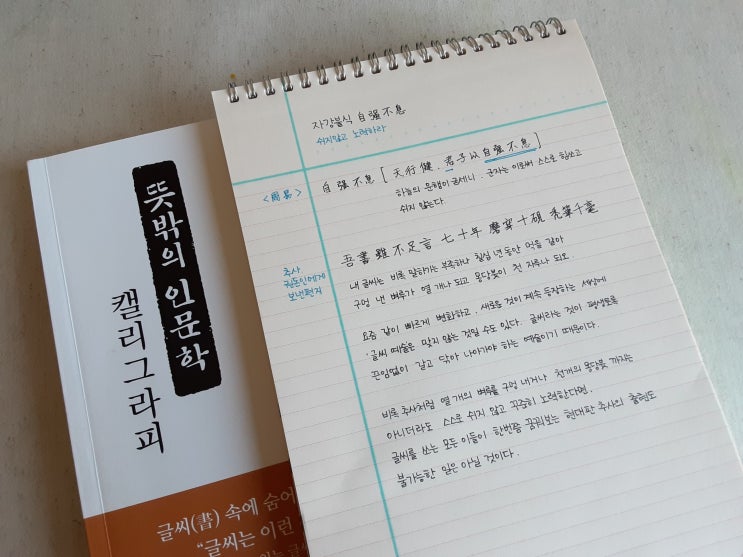 뜻밖의 인문학
캘리그라피
글씨(書) 속에 숨어
“글씨는 이런
자강불식 自强不息
쉬지않고 노력하라
<周易>
自强不息 [ 天行健, 君子以自强不息 ]
하늘의 운행이 굳세니, 군자는 이로써 스스로 힘쓰고
쉬지 않는다.
추사
권돈인에게
보낸편지
吾書雖不足言 七十年 磨穿十硯 禿筆千毫
내 글씨는 비록 말하기는 부족하나 칠십 년 동안 먹을 갈아
구멍 낸 벼루가 열 개나 되고 몽당붓이 천 자루나 되오.
요즘 같이 빠르게 변화하고, 새로운 것이 계속 등장하는 세상에
글씨 예술은 맞지 않는 것일 수도 있다. 글씨라는 것이 평생토록
끈임없이 갈고 닦아 나아가야 하는 예술이기 때문이다.
비록 추사처럼 열 개의 벼루를 구멍 내거나 천개의 몽당붓 까지는
아니더라도 스스로 쉬지 않고 꾸준히 노력한다면,
글씨를 쓰는 모든 이들이 한번쯤 꿈꿔보는 현대판 추사의 출현도
불가능한 일은 아닐 것이다.